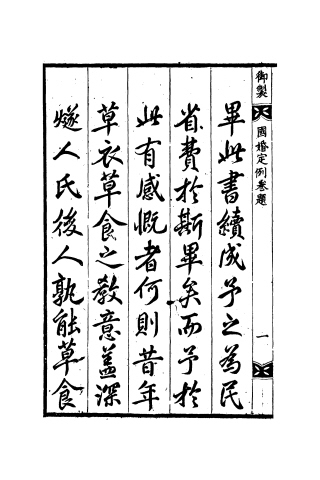 御製
國婚定例卷題
一
畢此書續成予之為民
省費於斯畢矣而予於
此有感慨者何則昔年
草衣草食之教意蓋深
燧人氏後人孰能草食